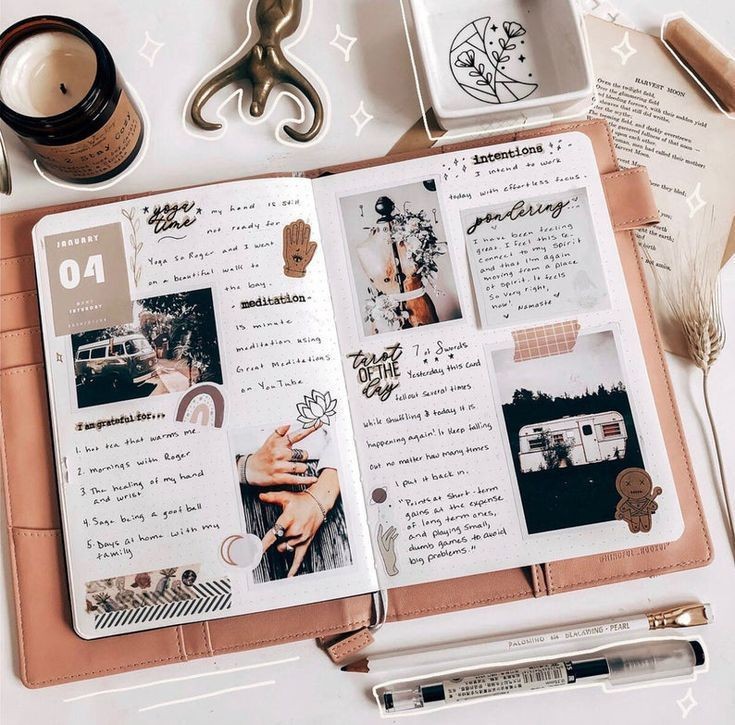 2 Stay cozy
JANUARY
04
SATURDAY
yoga time
my hand is still
not ready for
Yoga so Roger and I went
on a beautiful walk to
the bay.
meditation
15 minute
meditation using
Great Meditations
on YouTube
I am grateful for...
1. hot tea that warms me.
2. mornings with Roger
3. The healing of my hand
and wrist
4. Sage being a goof ball
5. Days at home with my
family
intentions
I intend to work
today with effortless focus.
pondering
I have been feeling
great. I feel this re-
connect to my Spirit
and that I'm again
moving from a place
of Spirit. I feels
so very right,
now. Namaste
tarot OF THE day
7 of Swords
Yesterday this card
fell out several times
while shuffling & today it is
happening again! It keep falling
out no matter how many times
I put it back in.
"Points at short-term
gains at the expense
of long term ones,
and playing small,
dumb games to avoid
big problems."
HARVEST MOON
Over the twilight
PALOMINO BLACKWING - PEARL